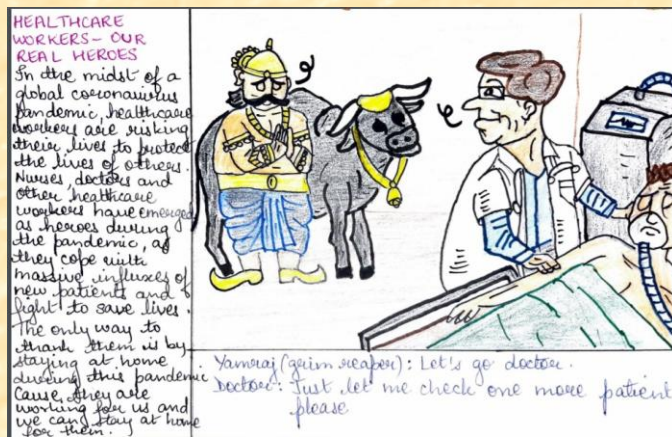 HEALTHCARE
WORKERS - OUR
REAL HEROES
In the midst of a
global coronavirus
pandemic, healthcare
workers are risking
their lives to protect
the lives of others.
Nurses, doctors and
other healthcare
workers have emerged
as heroes during
the pandemic, as
they cope with
massive influxes of
new patients and
fight to save lives.
The only way to
thank them is by
staying at home
during this pandemic
Cause, they are
working for us and
we can stay at home
for them.
Yamraj (grim reaper): Let's go doctor.
Doctor: Just let me check one more patient
please